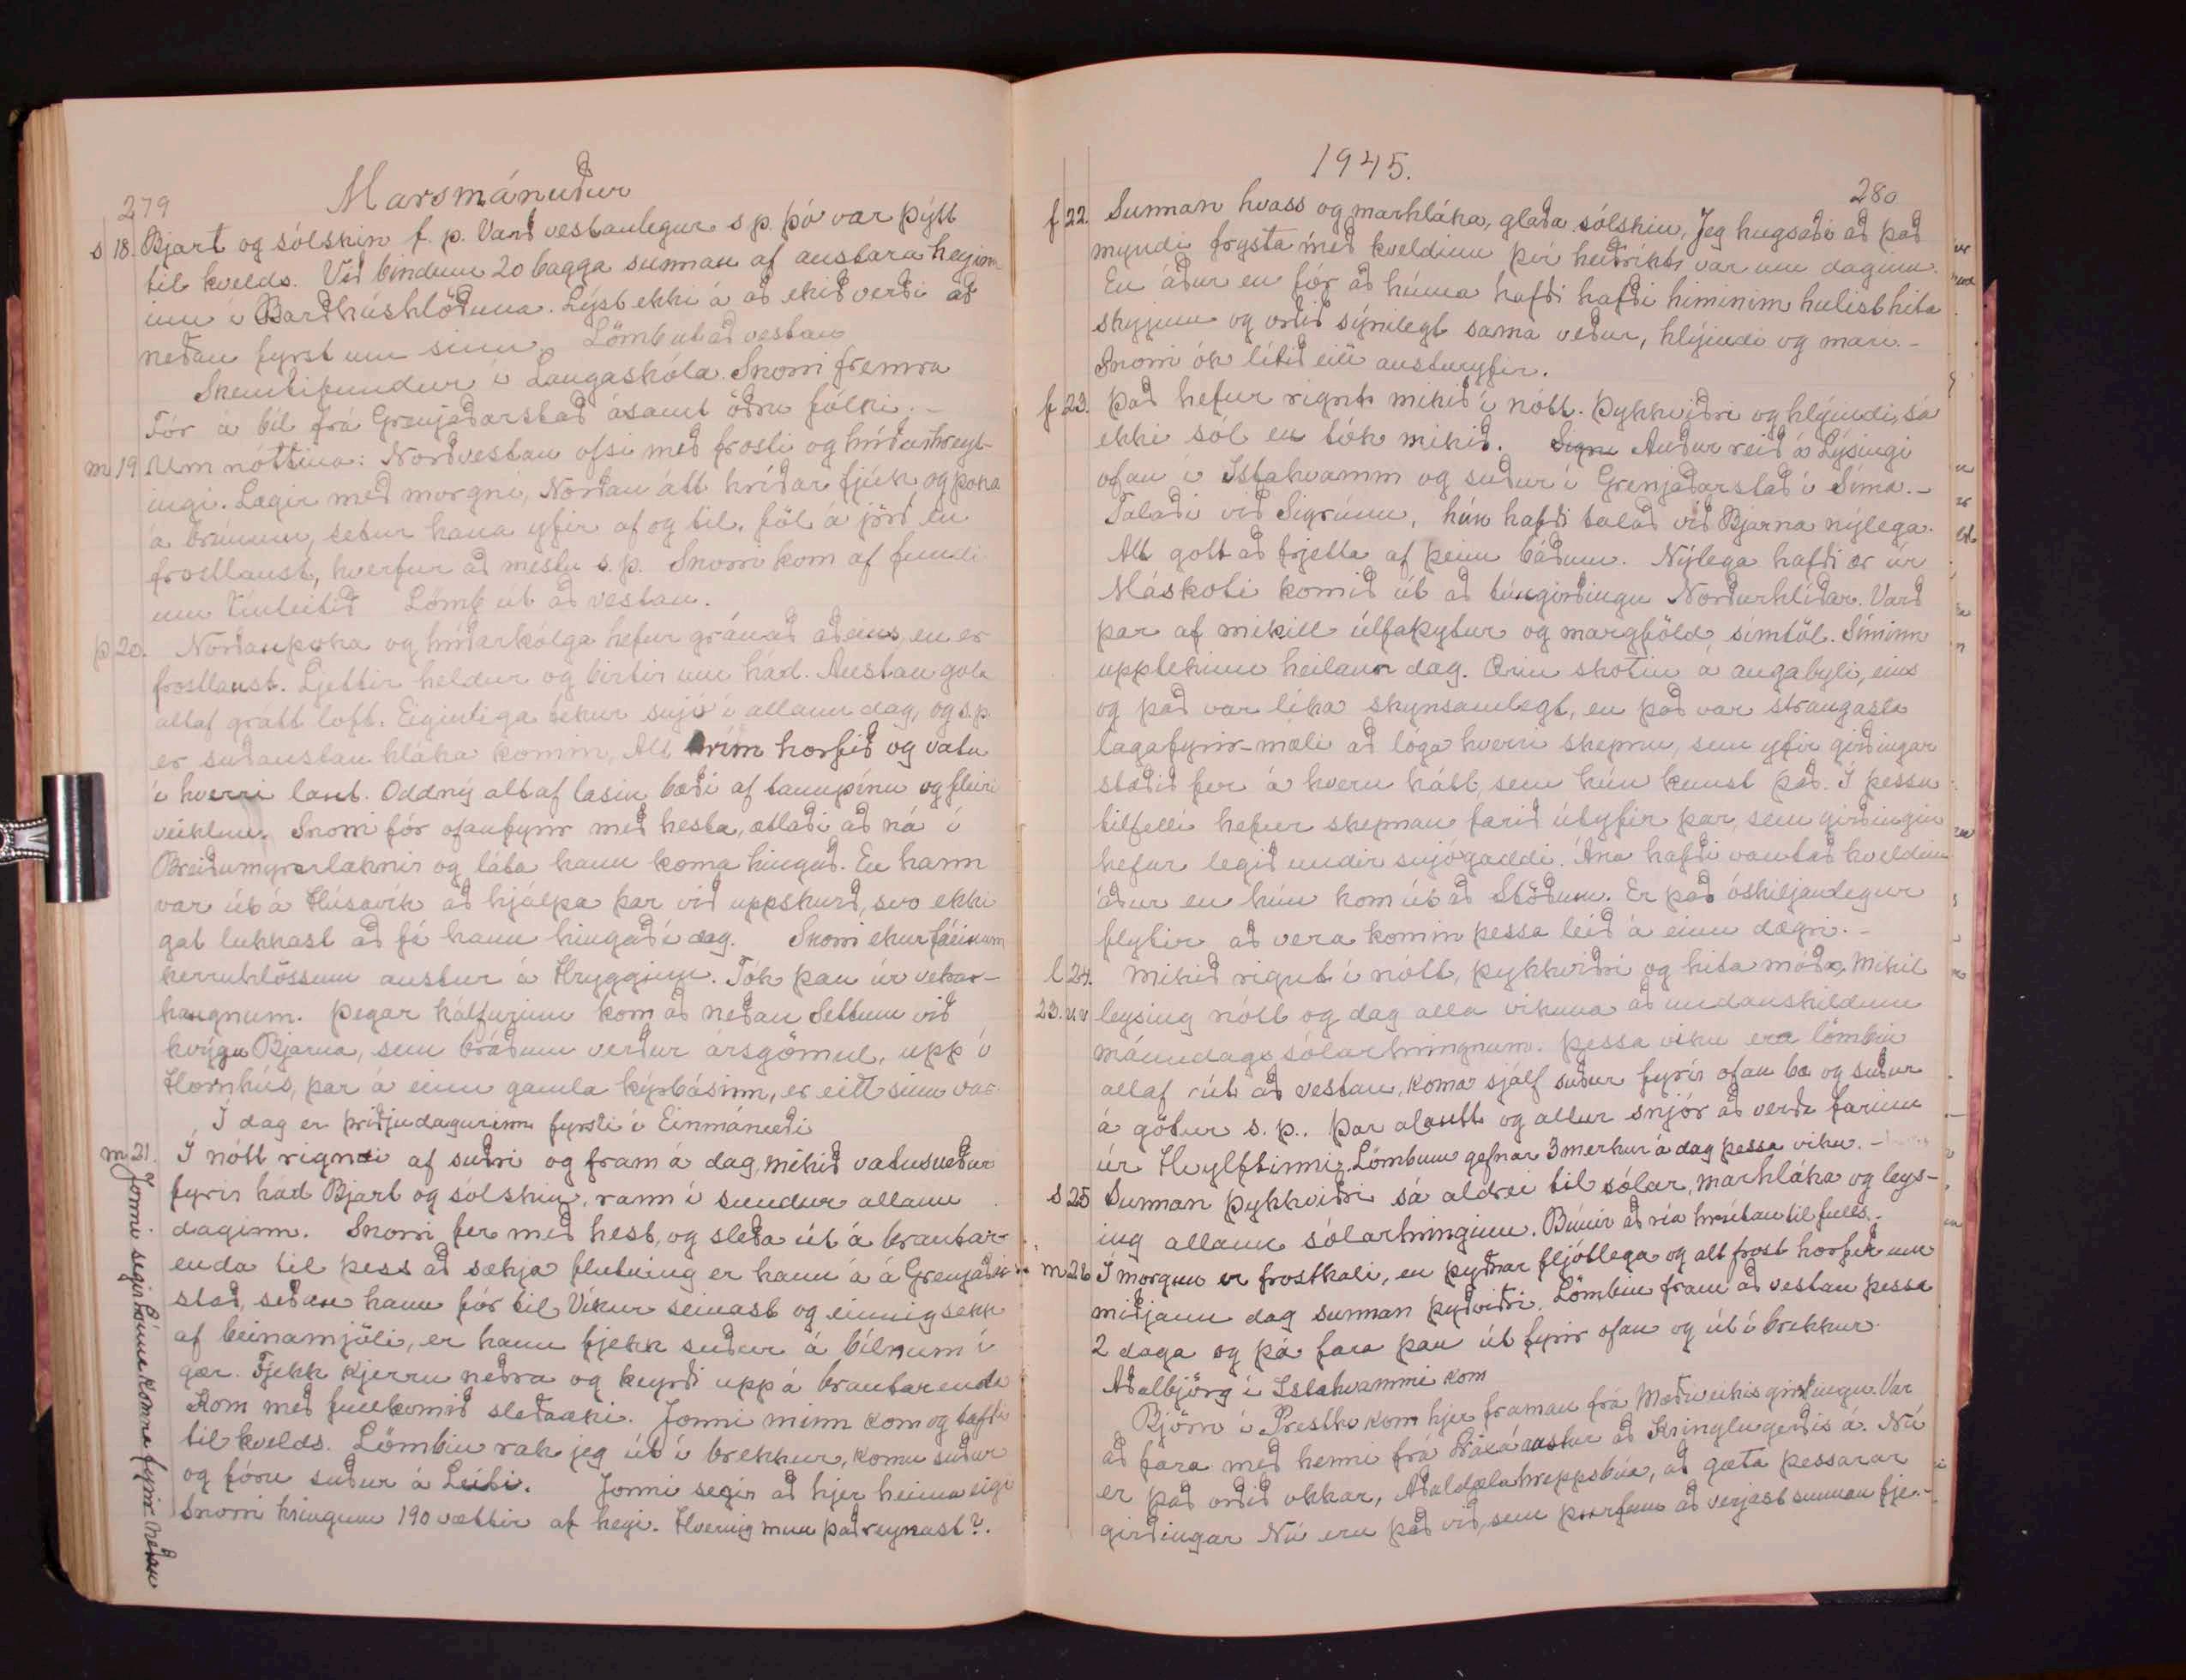 279
Marsmánuður
s 18. Bjart og sólskin f. p. Varð vestanlegur s p. þó var þýtt
til kvelds. Við bindum 20 bagga sunnan af austara heyinu
inn í Barðhúshlöðuna. Lýst ekki á að ekið verði að
neðan fyrst um sinn. Lömb út að vestan
Skemtifundur í Laugaskóla. Snorri fremra
Fór á bíl frá Grenjaðarstað ásamt öðru fólki. -
m 19 Um nóttina: Norðvestan ofsi með frosti og hríðarhreyt-
ingi. Lægir með morgni, Norðan átt hríðar fjúk og þoka
á brúnum, setur hana yfir af og til. föl á jörð en
frostlaust, hverfur að mestu s. p. Snorri kom af fundi
um tíuleitið Lömb út að vestan.
þ 20. Norðanþoka og hríðarkólga hefur gránað aðeins en er
frostlaust. Ljettir heldur og birtir um hád. Austan gola
altaf grátt loft. Eiginliga tekur snjó í allann dag, og s.p.
er suðaustan hláka komin, Alt hrím horfið og vatn
í hverri laut. Oddný altaf lasin bæði af tannpínu og fleiri
veiklun. Snorri fór ofanfyrir með hesta, ætlaði að ná í
Breiðumýrarlæknir og láta hann koma hingað. En hann
var út á Húsavík að hjálpa þar við uppskurð, svo ekki
gat lukkast að fá hann hingað í dag. Snorri ekur fáeinum
kerruhlössum austur á Hryggjum. Tók þau úr vekar-
haugnum. Þegar kálfurinn kom að neðan Settum við
kvígu Bjarna, sem bráðum verður ársgömul, upp í
Hornhús, þar á einn gamla kýrbásinn, er eitt sinn var.
Í dag er þriðjudagurinn fyrsti í Einmánuði
m 21. Í nótt rigndi af suðri og fram á dag, mikið vatnsveður
fyrir hád Bjart og sólskin, rann í sundur allann
daginn. Snorri fer með hest, og sleða út á brautar-
enda til þess að sækja flutning er hann á á Grenjaðar-
stað, síðan hann fór til Víkur seinast og einnig sekk
af beinamjöli, er hann fjekk suður á bílnum í
gær. Fjekk kjerru neðra og keyrði upp á brautarenda
Kom með fullkomið sleðaæki. Jonni minn kom og tafði
til kvelds. Lömbin rak jeg út í brekkur, komu suður
og fóru suður á Leiti. Jonni segir að hjer heima eigi
Snorri kringum 190 vættir af heyi. Hvernig mun það reynast?.
Jonni segir kominn fyrir neðan
1945.
280
f 22. Sunnan hvass og marhláka, glaða sólskin, Jeg hugsaði að það
myndi frysta með kveldinu því heiðríkt var um daginn.
En áður en fór að húma hafði hafði himininn hulist hita
skyjum og orðið sýnilegt sama veður, hlýindi og mari. -
Snorri ók lítið eitt austuryfir.
f 23. Það hefur rignt mikið í nótt. Þykkviðri og hlýindi, sá
ekki sól en tók mikið. Auður reið á Lýsingi
ofan í Ystahvamm og suður í Grenjaðarstað í Síma. -
Talaði við Sigrúnu, hún hafði talað við Bjarna nýlega.
Alt gott að frjetta af þeim báðum. Nýlega hafði ær úr
Máskoti komið út að túngirðingu Norðurhlíðar. Varð
þar af mikill úlfaþytur og margföld símtöl. Síminn
upptekinn heilann dag. Ærin skotin á augabyli, eins
og það var líka skynsamlegt, en það var strangasta
lagafyrir-mæli að lóga hverri skepnu, sem yfir girðingar
stæðið fer á hvern hátt sem hún kemst það. Í þessu
tilfelli hefur skepnan farið útyfir þar, sem girðingin
hefur legið undir snjógaddi. Ána hafði vantað kveldinu
áður en hún kom út að Stöðum. Er það óskiljanlegur
flytir að vera komin þessa leið á einu dægri. -
l 24. Mikið rignt í nótt, þykkviðri og hita móða, Mikil
23. v.v leysing nótt og dag alla vikuna að undanskildum
mánudags sólarhringnum. þessa viku era lömbin
altaf rút að vestan, koma sjálf suður fyrir ofan bæ og suður
á götur s. p.. Þar alautt og allur snjór að verða farinn
úr Heylftinni. Lömbum gefnar 3 merkur á dag þessa viku. -
s 25 Sunnan þykkviðri sá aldrei til sólar, marhláka og leys-
ing allann sólarhringinn. Búnir að ría hrútan til fulls.
m 26 Í morgun er frostkali, en þyðnar fljótlega og alt frost horfið um
miðjann dag sunnan þyðviðri. Lömbin fram að vestan þessa
2 daga og þá fara þau út fyrir ofan og út í brekkur.
Aðalbjörg í Ystahvammi kom
Björn í Presth kom hjer framan frá Mæðiveikis girðingu. Var
að fara með henni frá Laxá austur að Kringlugerðis á. Nú
er það orðið okkar, Aðaldælahreppsbúa, að gæta þessarar
girðingar Nú eru það við, sem þurfum að verjast sunnan fje. -